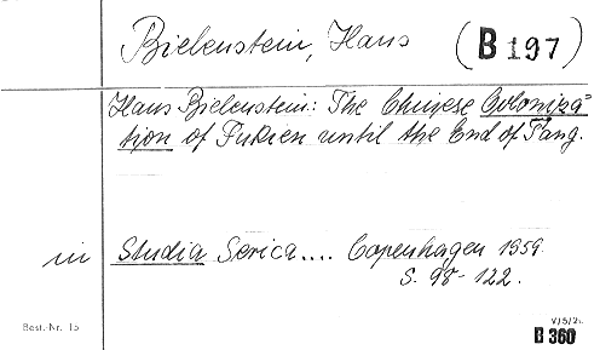 Bielenstein, Hans (B 197)
Hans Bielenstein: The Chinese Coloniza=
tion of Fukien until the End of T'ang.
in Studia Serica.... Copenhagen 1959.
S. 98-122.
Best.-Nr. 15
V/5/2.
B 360